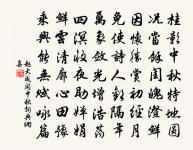 桂彩中秋特地圓
況當餘閏魄澄鮮
因懷勝賞初經月
免使詩人歎隔年
萬象斂光增浩蕩
四溟收夜助嬋娟
鱗雲清廓心田豫
乘興能無賦詠篇
閏中秋